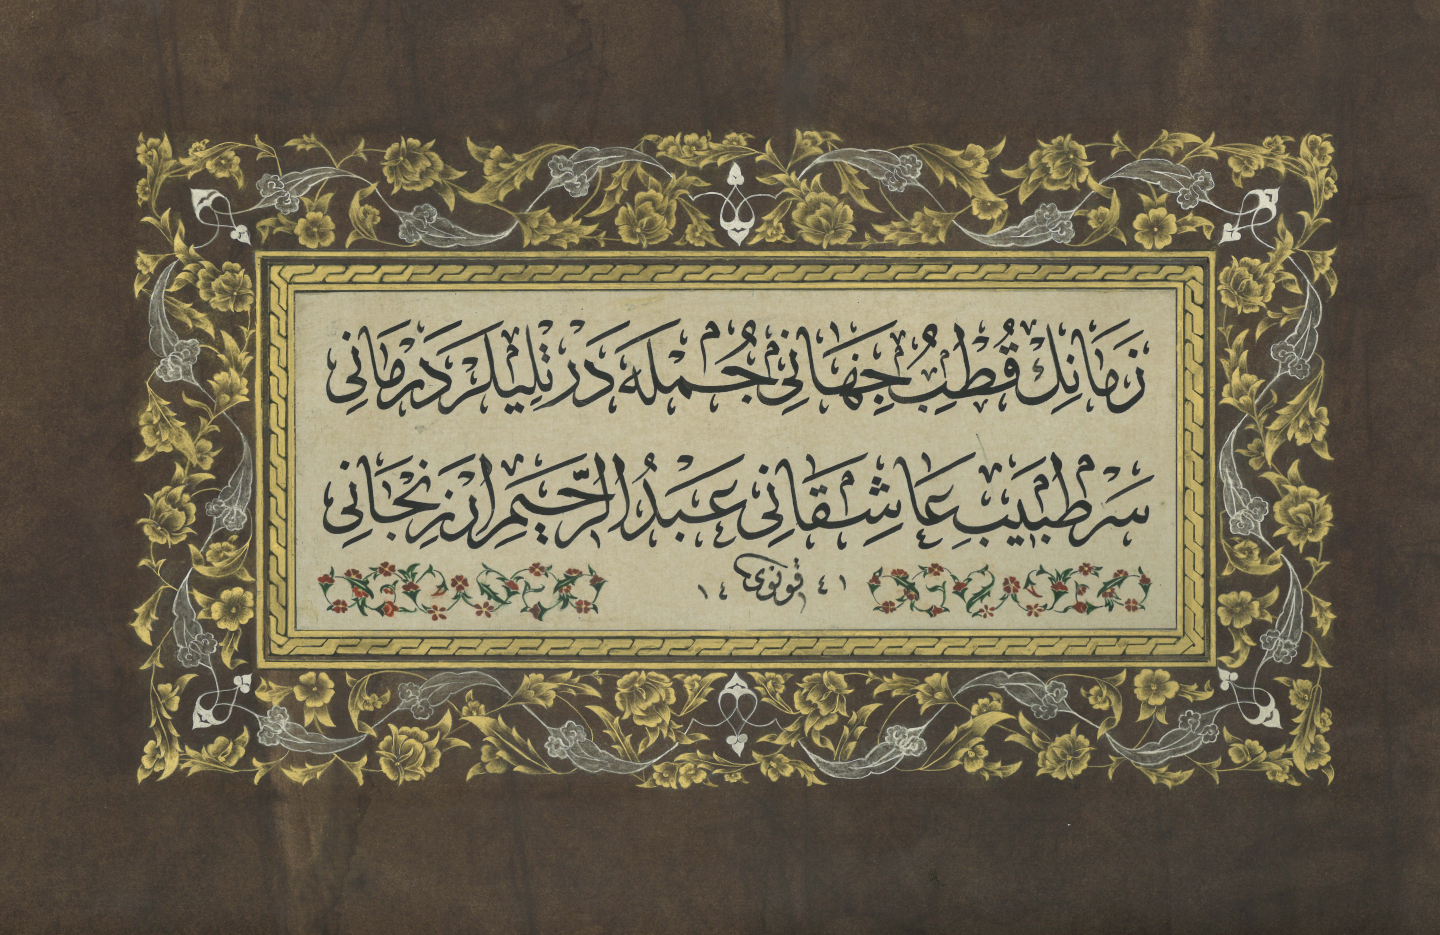 زَمَانِڭ قُطْبِ جِهَانِی جُمْلَه دَرْتْلِیلَرَ دَرْمَانِی
سَرْطَبِیبِ عَاشِقَانِی عَبْدُ الرَّحِیمِ اَرْزِنْجَانِی
قونوی ١٤٤١